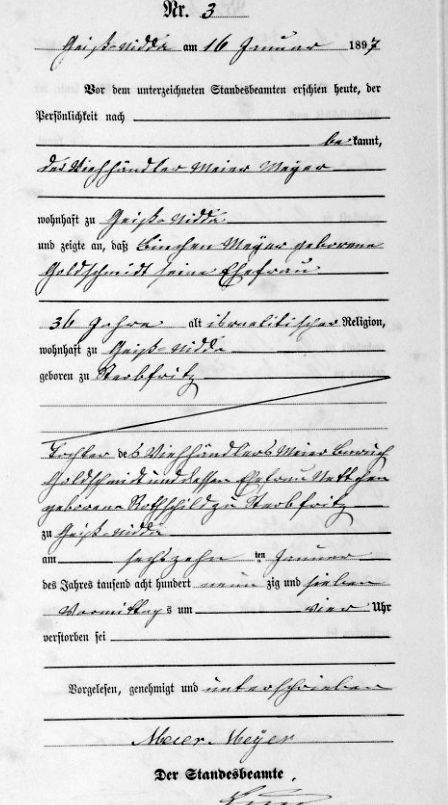 Nr. 3
Geiß-Nidda am 16 Januar 1897
Vor dem unterzeichneten Standesbeamten erschien heute, der
Persönlichkeit nach
bekannt,
der Viehhändler Meier Meyer
wohnhaft zu Geiß-Nidda
und zeigte an, daß Binchen Meyer geborene
Goldschmidt seine Ehefrau
36 Jahre alt israelitischer Religion,
wohnhaft zu Geiß-Nidda
geboren zu Sterbfritz
Tochter des Viehhändlers Meier Baruch
Goldschmidt und dessen Ehefrau Nettchen
geborene Rothschild zu Sterbfritz
zu Geiß-Nidda
am sechszehn ten Januar
des Jahres tausend acht hundert neun zig und sieben
Vormittags um vier Uhr
verstorben sei
Vorgelesen, genehmigt und unterschrieben
Meier Meyer
Der Standesbeamte.